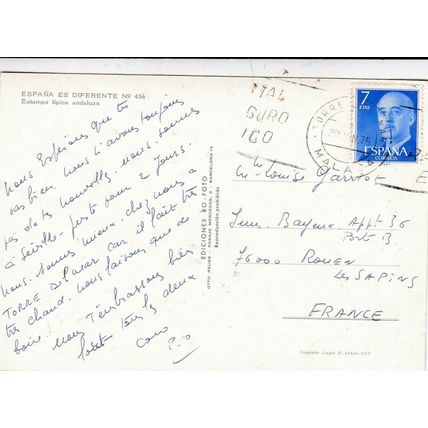 ESPAÑA ES DIFERENTE Nº 656
Estampa típica andaluza
nous espérons que tu
vas bien. nous n'avons toujours
pas de tes nouvelles. nous sommes
à Séville - juste pour 2 jours.
nous sommes mieux chez nous à
TORRE car il fait très
très chaud. nous faisons que de
boire. nous t'embrassons bien
fort tous les deux
EDICIONES RO-FOTO
Reproducción prohibida
TAL
GURO
IGO
TORRE
MALA
7
PTAS
ESPAÑA
CORREOS
Imm. Bayeux. Appt 36
Porte B
76000 Rouen
Les SAPINS
FRANCE
Depósito Legal B.